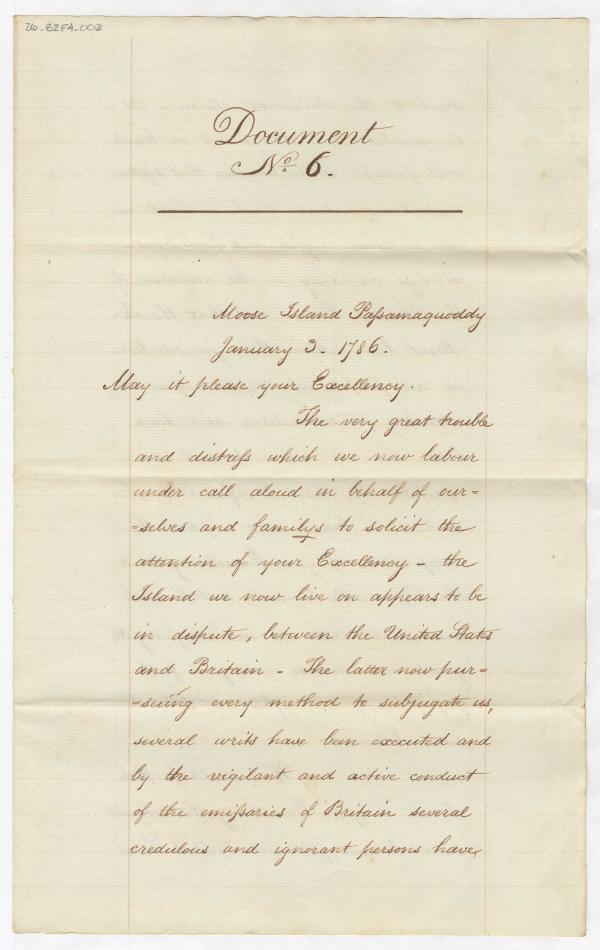 26-B2F4-002
Document
No. 6.
Moose Island Paſsamaquoddy
January 3. 1786.
May it please your Excellency.
The very great trouble
and distreſs which we now labour
under call aloud in behalf of our=
=selves and familys to solicit the
attention of your Excellency - the
Island we now live on appears to be
in dispute, between the United States
and Britain - The latter now pur=
=suing every method to subjugate us,
several writs have been executed and
by the vigilant and active conduct
of the emiſsaries of Britain several
credulous and ignorant persons have